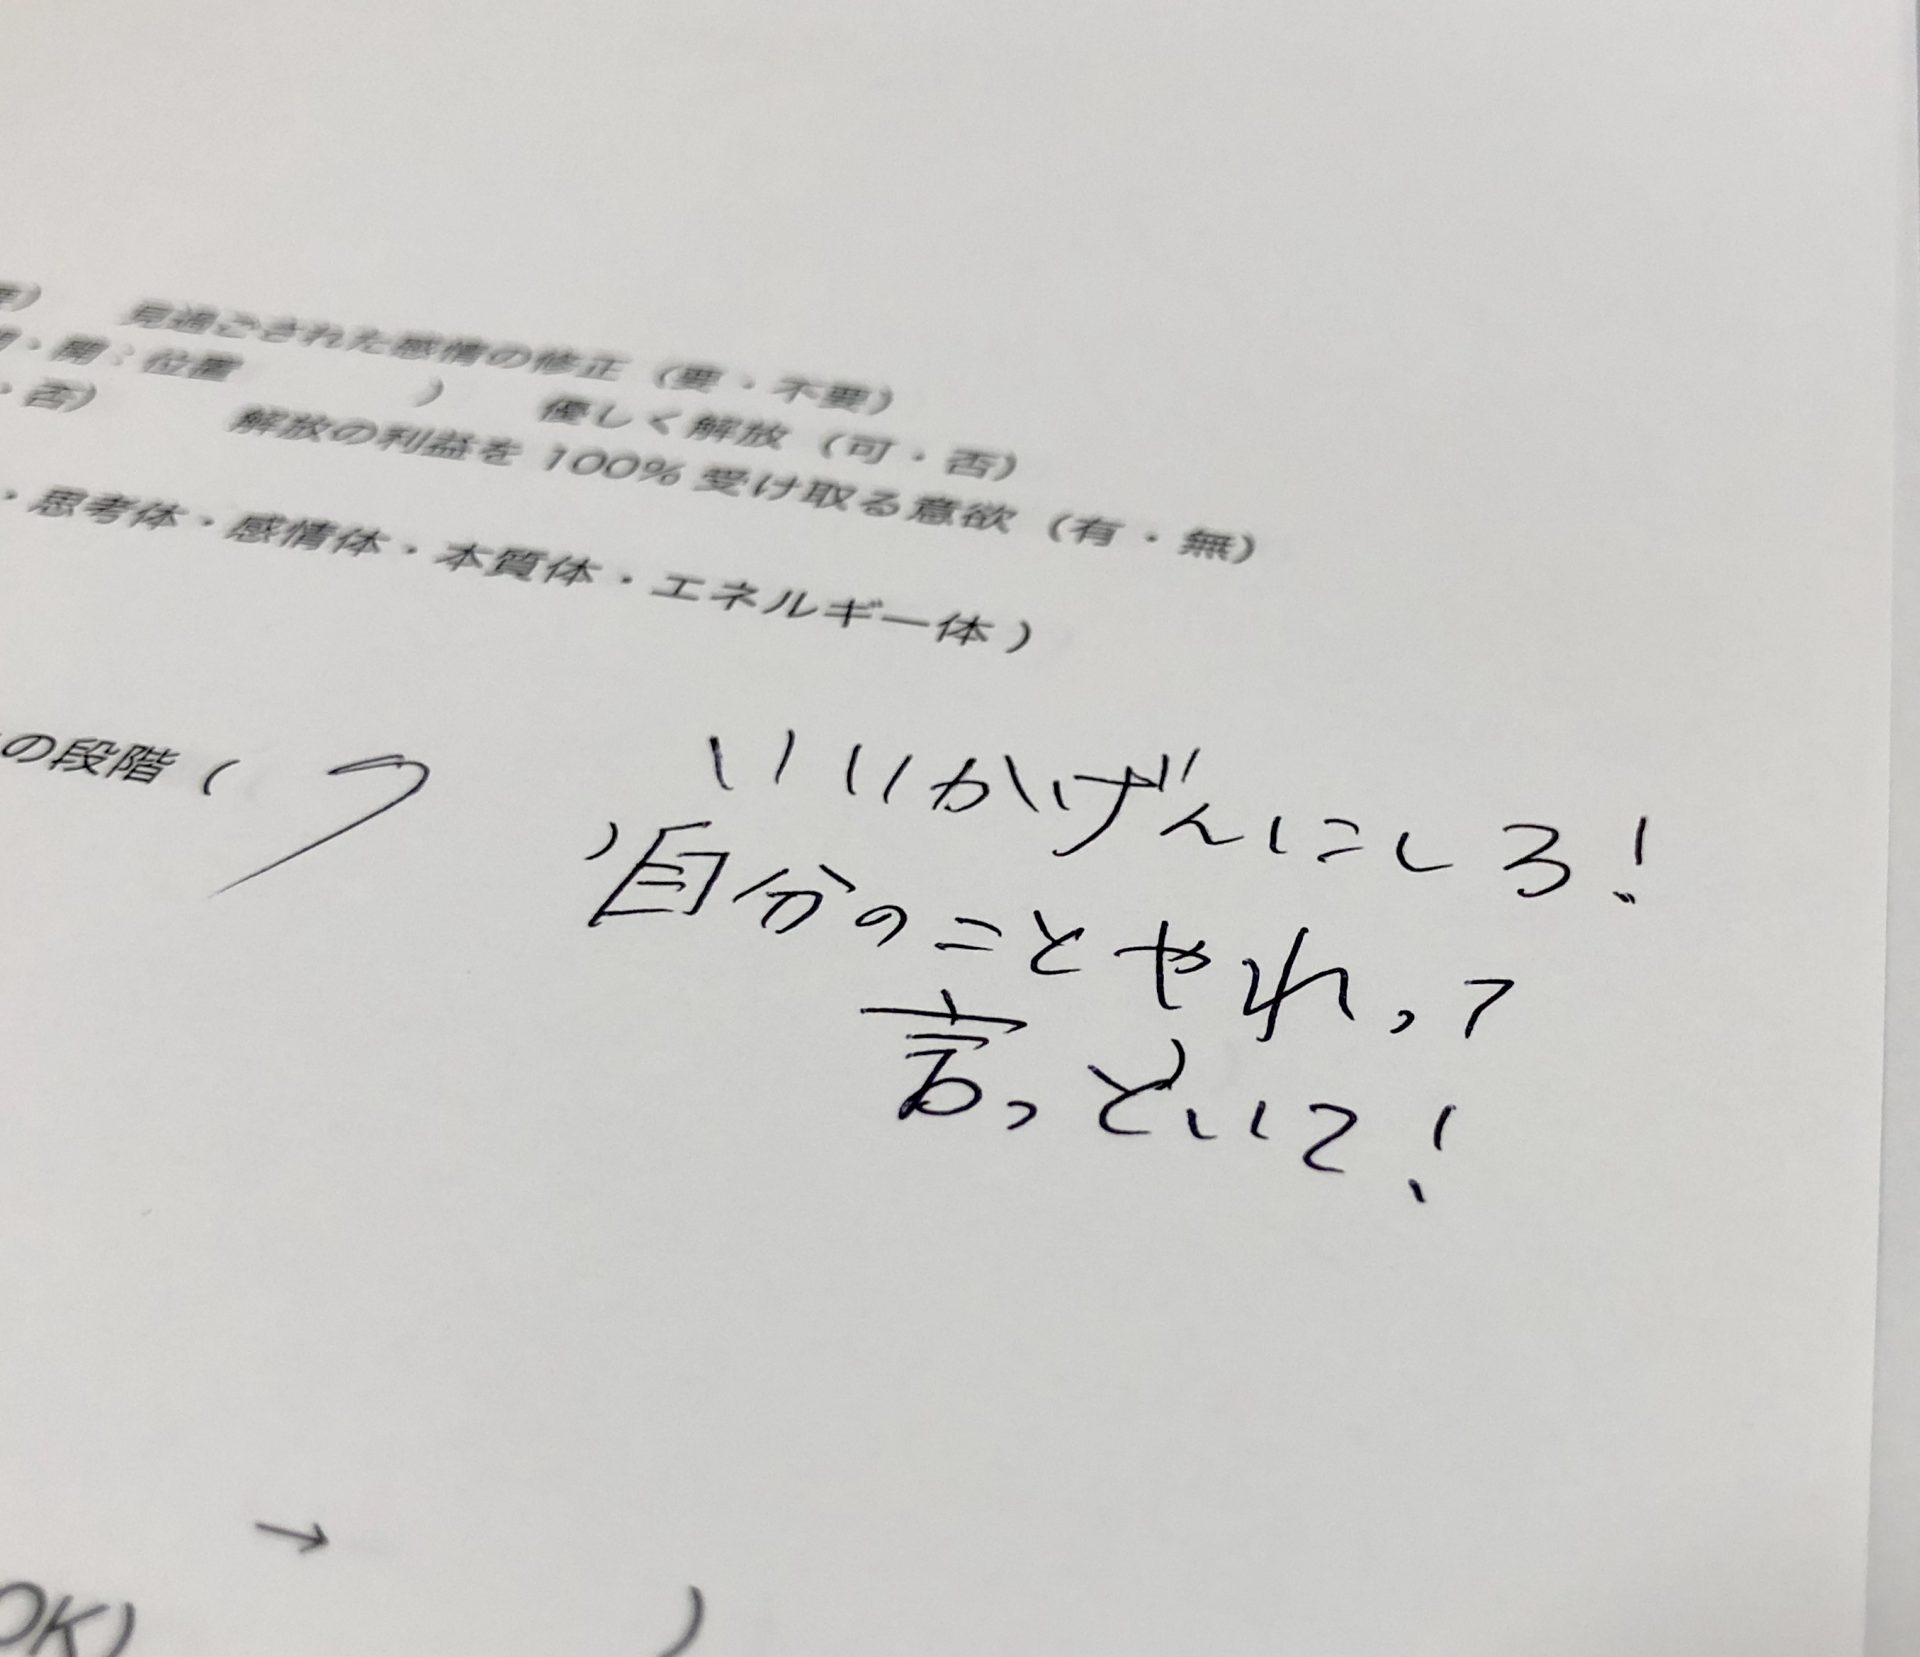 見過ごされた感情の修正（要・不要）
・開：位置　　　　）　優しく解放（可・否）
・否）　　解放の利益を 100% 受け取る意欲（有・無）
・思考体・感情体・本質体・エネルギー体）
の段階（ ７ ）
いいかげんにしろ！
自分のことやれって
言っといて！
→
OK)　　　　）